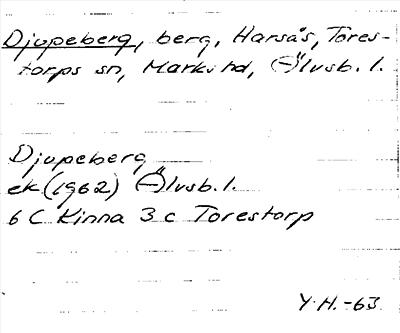 Djupeberg, berg, Harsås, Töres-
torps sn, Marks hd, Älvsb. l.
Djupeberg
ek (1962) Älvsb. l.
6 C Kinna 3 c Torestorp
Y. H. -63